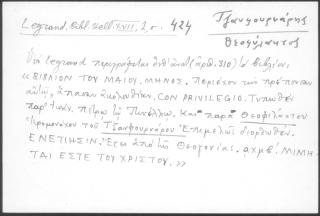 Legrand, Bibl. Hell. XVII, 2, σ. 424
Τζανφουρνάρης
Θεοφύλακτος
Ἐν Legrand περιγράφεται ὑπ' ἀριθ. (ἀρ. 310) τὸ βιβλίον,
«ΒΙΒΛΙΟΝ ΤΟΥ ΜΑΙΟΥ, ΜΗΝΟΣ. Περιέχον τὴν πρέπουσαν
αὐτῷ, ἅπασαν ἀκολουθίαν. CON PRIVILEGIO. Τυπωθὲν
παρ' Πέτρῳ τῷ Πινέλλῳ. Καὶ παρὰ Θεοφυλάκτου
Ἱερομονάχου τοῦ Τζανφουρνάρου Ἐπιμελῶς διορθωθέν.
ΕΝΕΤΙΗΣΙΝ. Ἔτει ἀπὸ τῆς Θεογονίας. αχμβ'. ΜΙΜΗ-
ΤΑΙ ΕΣΤΕ ΤΟΥ ΧΡΙΣΤΟΥ.»